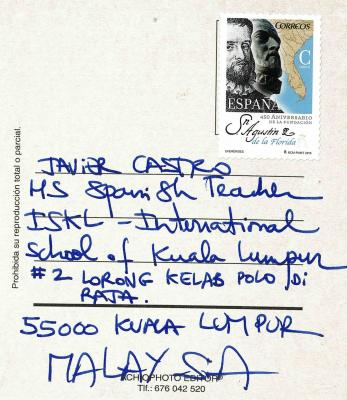 CORREOS
C
ESPAÑA
450 ANIVERSARIO
DE LA FUNDACIÓN
Sn Agustín
de la Florida
Prohibida su reproducción total o parcial.
JAVIER CASTRO
MS Spanish Teacher
ISKL - International
School of Kuala Lumpur
#2 LORONG KELAB POLO DI
RAJA.
55000 KUALA LUMPUR
MALAYSIA
Tlf.: 676 042 520